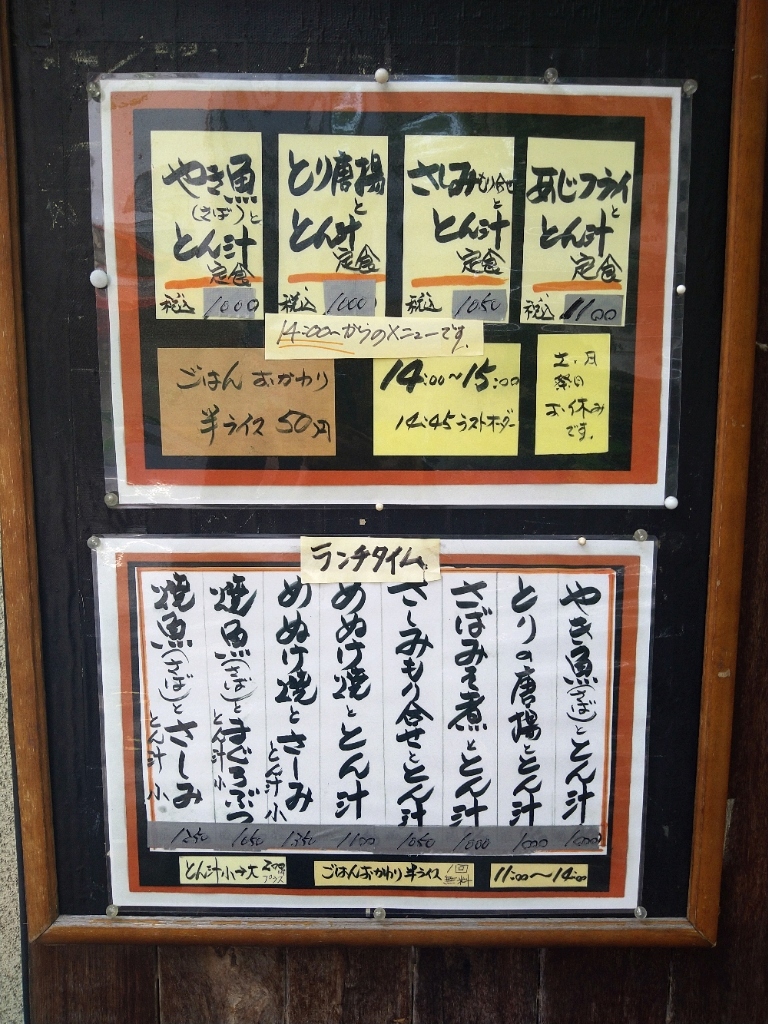 やき魚
(さば)と
とん汁
定食
税込 1000
とり唐揚
と
とん汁
定食
税込 1000
さしみもり合せ
と
とん汁
定食
税込 1050
あじフライ
と
とん汁
定食
税込 1100
14:00~からのメニューです。
ごはん おかわり
半ライス 50円
14:00~15:00
14:45 ラストオーダー
土・日
祭日
お休み
です。
ランチタイム
やき魚(さば)ととん汁 1000
とりの唐揚ととん汁 1000
さばみそ煮ととん汁 1000
さしみもり合せととん汁 1050
めぬけ焼ととん汁 1100
めぬけ焼とさしみ
とん汁小 1350
焼魚(さば)とまぐろぶつ
とん汁小 1050
焼魚(さば)とさしみ
とん汁小 1250
とん汁小→大
プラス
ごはんおかわり半ライス 1回
無料
11:00~14:00